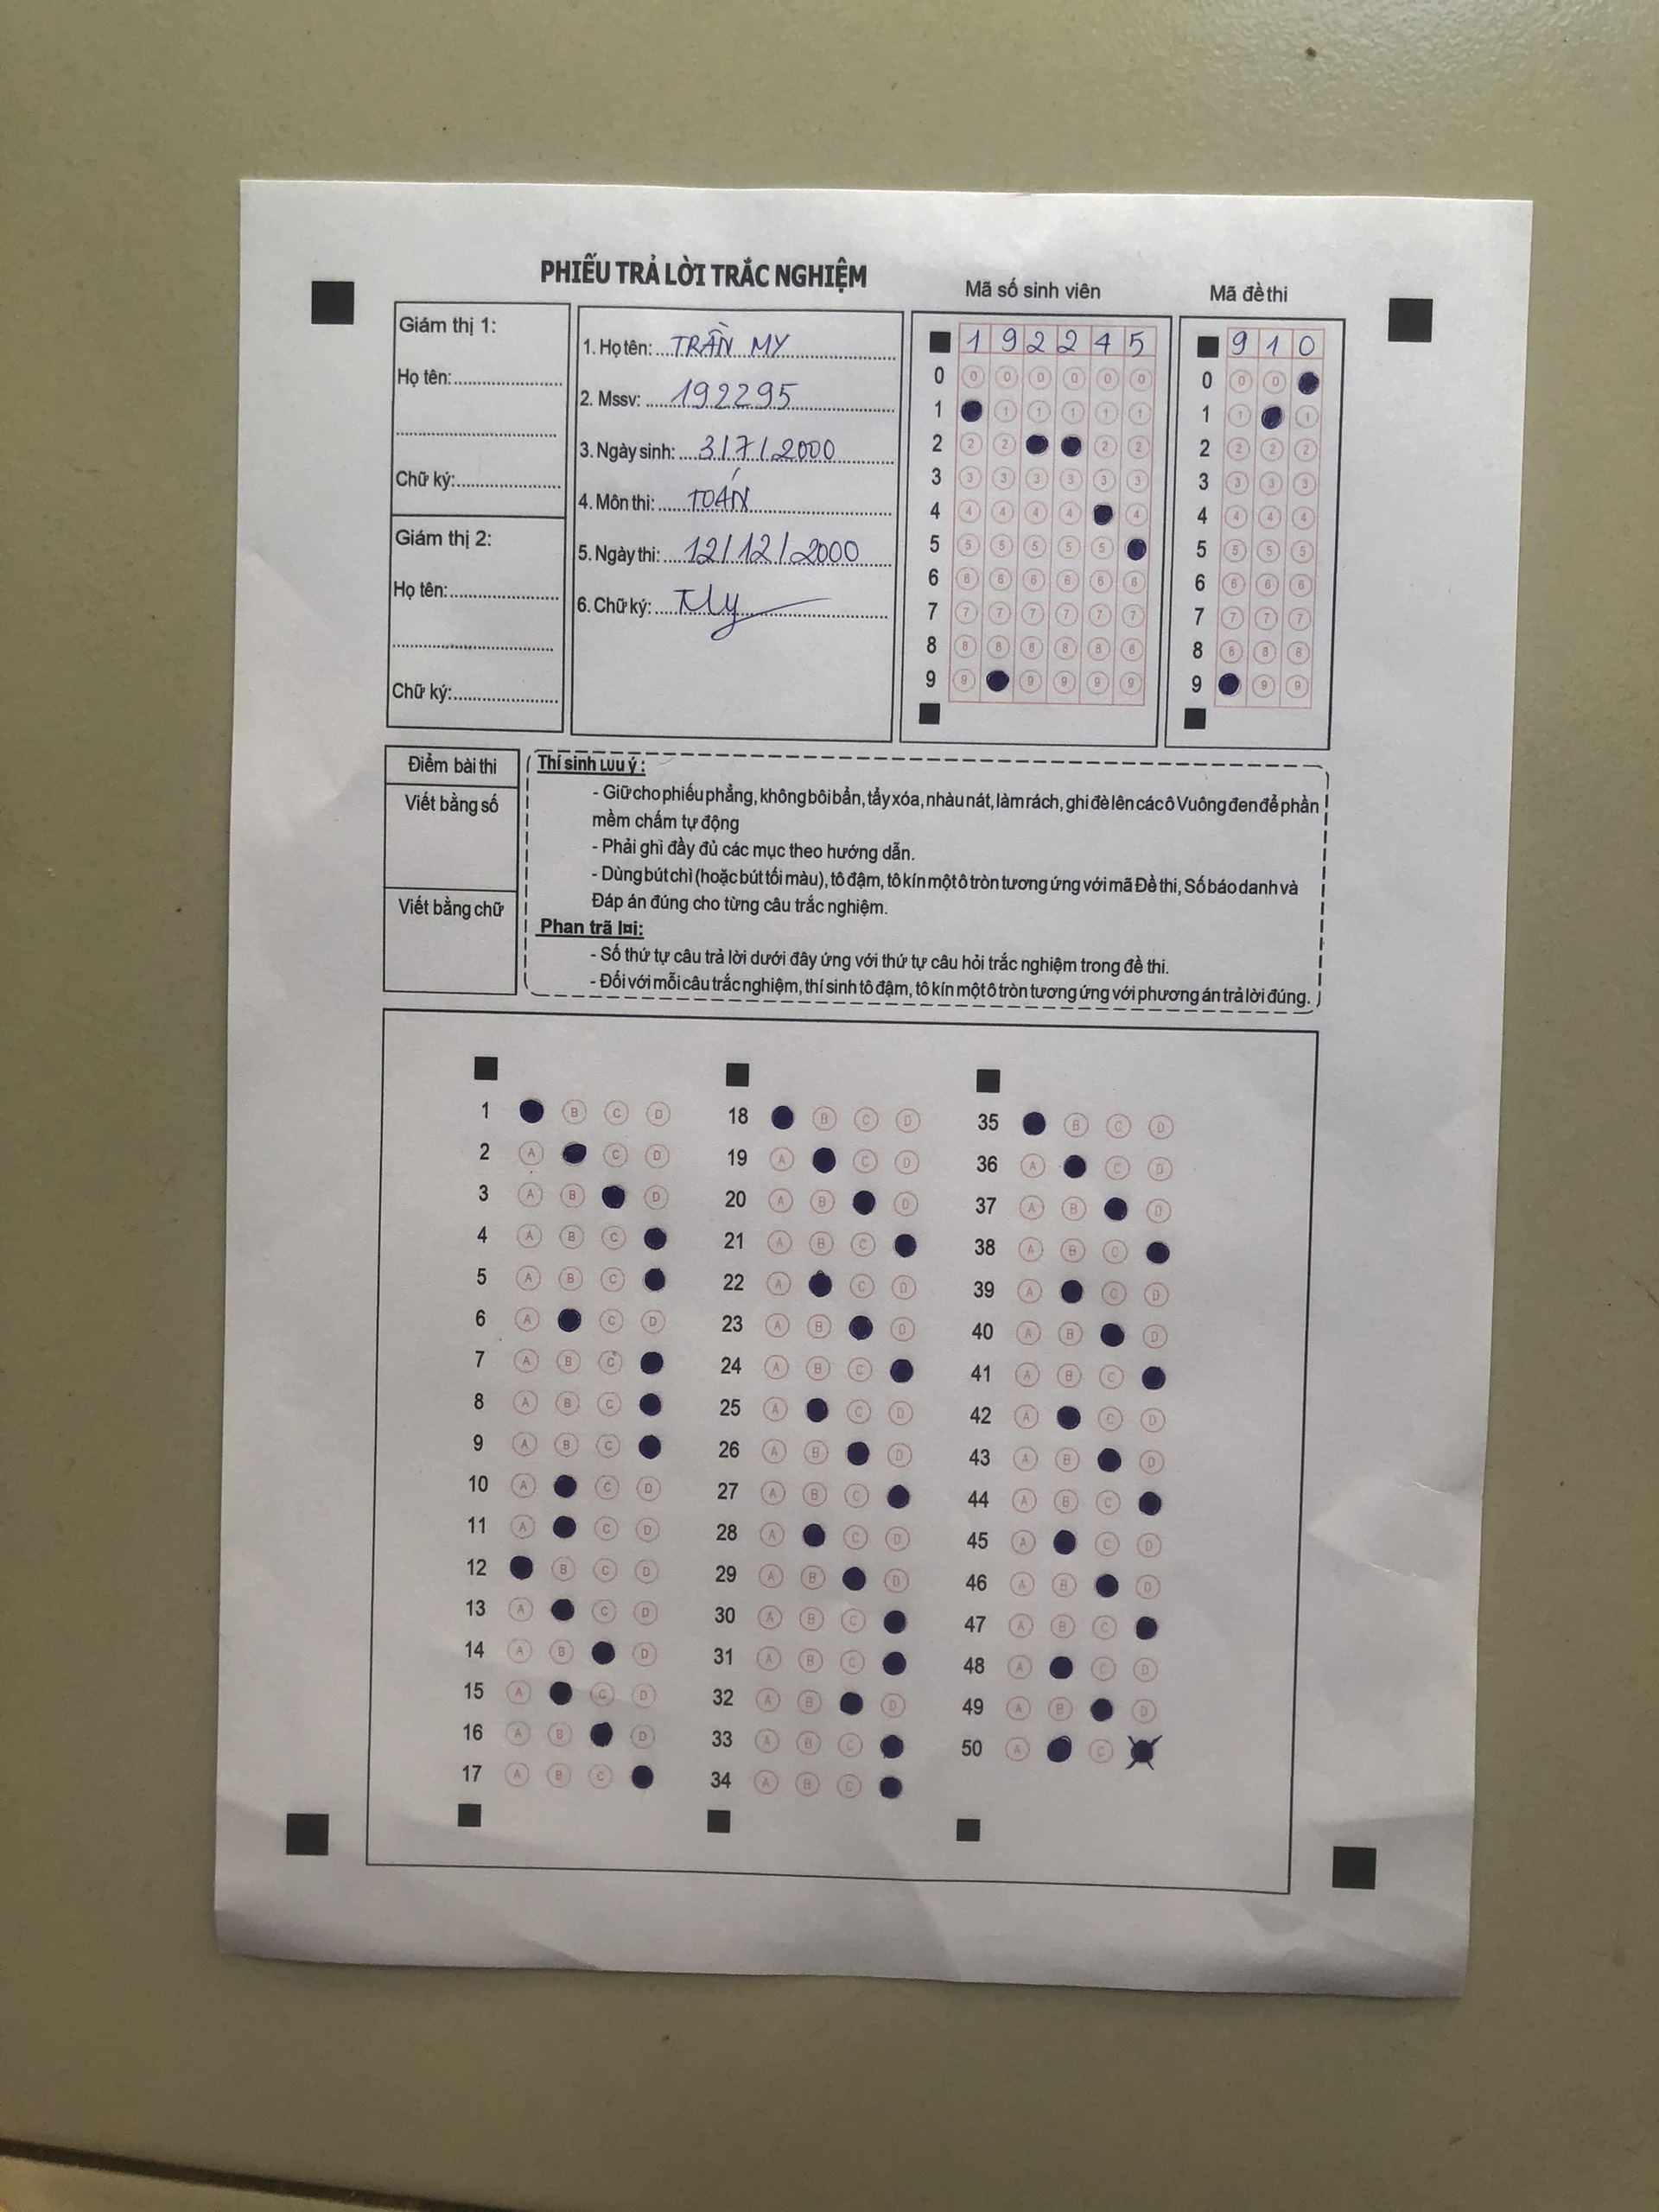 PHIẾU TRẢ LỜI TRẮC NGHIỆM
Mã số sinh viên
Mã đề thi
Giám thị 1:
Họ tên:
Chữ ký:
Giám thị 2:
Họ tên:
Chữ ký:
1. Họ tên: TRẦN MY
2. Mssv: 192295
3. Ngày sinh: 3/7/2000
4. Môn thi: TOÁN
5. Ngày thi: 12/12/2000
6. Chữ ký: My
1 9 2 2 4 5
0 0 0 0 0 0 0
1 1 1 1 1 1
2 2 2 2 2
3 3 3 3 3 3 3
4 4 4 4 4 4
5 5 5 5 5 5
6 6 6 6 6 6 6
7 7 7 7 7 7 7
8 8 8 8 8 8 8
9 9 9 9 9 9
9 1 0
0 0 0
1 1 1
2 2 2 2
3 3 3 3
4 4 4 4
5 5 5 5
6 6 6 6
7 7 7 7
8 8 8 8
9 9 9
Điểm bài thi
Viết bằng số
Viết bằng chữ
Thí sinh Lưu ý :
- Giữ cho phiếu phẳng, không bôi bẩn, tẩy xóa, nhàu nát, làm rách, ghi đè lên các ô Vuông đen để phần
mềm chấm tự động
- Phải ghì đầy đủ các mục theo hướng dẫn.
- Dùng bút chì (hoặc bút tối màu), tô đậm, tô kín một ô tròn tương ứng với mã Đề thi, Số báo danh và
Đáp án đúng cho từng câu trắc nghiệm.
Phan trã l¤i:
- Số thứ tự câu trả lời dưới đây ứng với thứ tự câu hỏi trắc nghiệm trong đề thi.
- Đối với mỗi câu trắc nghiệm, thí sinh tô đậm, tô kín một ô tròn tương ứng với phương án trả lời đúng.
1 B C D
2 A C D
3 A B D
4 A B C
5 A B C
6 A C D
7 A B C
8 A B C
9 A B C
10 A C D
11 A C D
12 B C D
13 A C D
14 A B D
15 A C D
16 A B D
17 A B C
18 B C D
19 A C D
20 A B D
21 A B C
22 A C D
23 A B D
24 A B C
25 A C D
26 A B D
27 A B C
28 A C D
29 A B D
30 A B C
31 A B C
32 A B D
33 A B C
34 A B C
35 B C D
36 A C D
37 A B D
38 A B C
39 A C D
40 A B D
41 A B C
42 A C D
43 A B D
44 A B C
45 A C D
46 A B D
47 A B C
48 A C D
49 A B D
50 A C